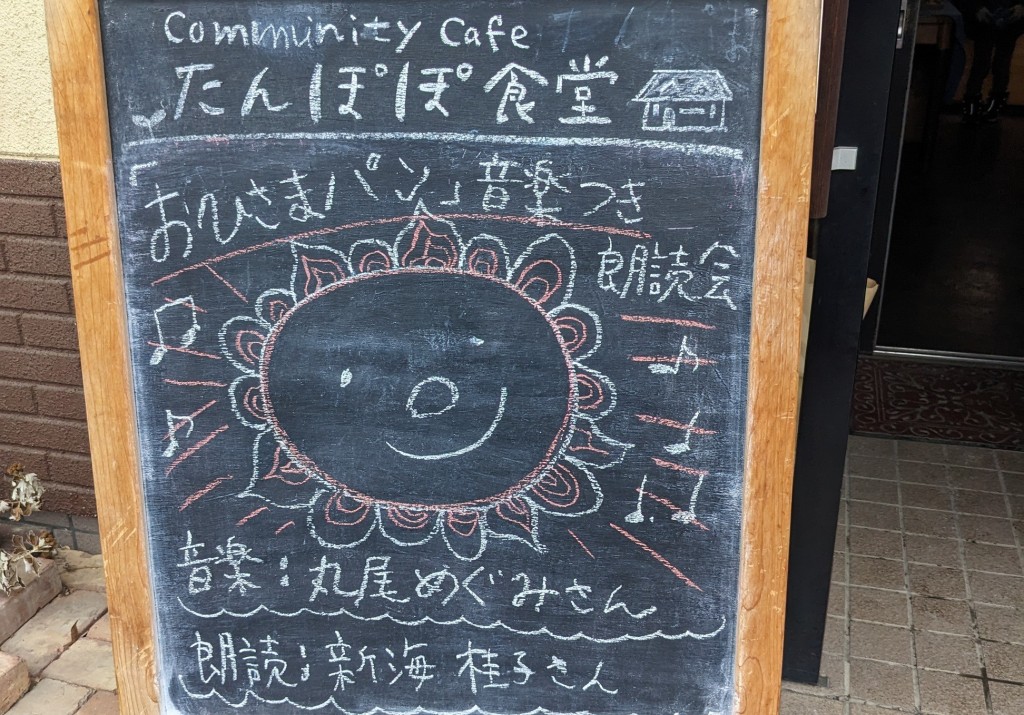 Community Cafe
たんぽぽ食堂
「おひさまパン」音楽つき
朗読会
音楽:丸尾めぐみさん
朗読:新海 桂子さん